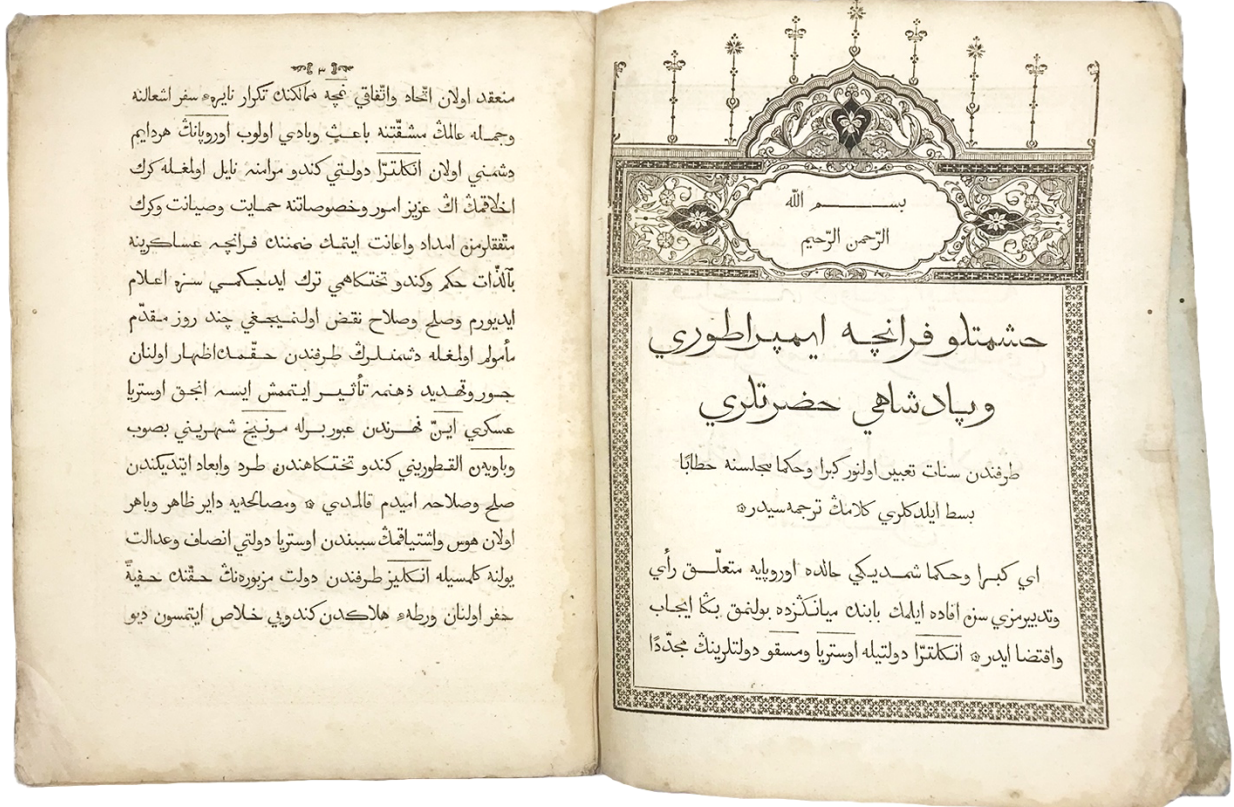 بسم الله
الرّحمن الرّحيم
حشمتلو فرانچه ايمپراطوري
وپادشاهي حضرتلري
طرفندن سنات تعبير اولنور كبرا وحكما مجلسنه خطابًا
بسط ايلدكلري كلامڭ ترجمه سيدر
اي كبرا وحكما شمديكي حالده اوروپايه متعلّق رأي
وتدبيرمزي سزه افاده ايلمك بابنك ميانڭزده بولنمق بڭا ايجاب
واقتضا ايدر انكلترّا دولتيله اوستريا ومسقو دولتلرينڭ مجدّدًا
٣
منعقد اولان اتّحاد واتّفاقي نمچه ممالكنك تكرار نايرهء سفر اشعالنه
وجمله عالمڭ مشقّتنه باعث وبادي اولوب اوروپانڭ هردايم
دشمني اولان انكلترّا دولتي كندو مرامنه نايل اولمغله كرك
اخلاقمڭ اڭ عزيز امور وخصوصاتنه حمايت وصيانت وكرك
متّفقلرمزه امداد واعانت ايتمك ضمننك فرانچه عساكرينه
بالذّات حكم وكندو تختكاهمي ترك ايدجكمي سزه اعلام
ايديورم وصلح وصلاح نقض اولنميجغي چند روز مقدّم
مأمولم اولمغله دشمنلرڭ طرفندن حقّمده اظهار اولنان
جور وتهديد ذهنمه تأثير ايتممش ايسه انجق اوستريا
عسكري اينّ نهرندن عبور برله مونيخ شهريني بصوب
وباويهن القطوريني كندو تختكاهندن طرد وابعاد ايتديكندن
صلح وصلاحه اميدم قالمدي ومصالحه‌يه داير ظاهر وباهر
اولان هوس واشتياقمڭ سببندن اوستريا دولتي انصاف وعدالت
يولنه كلمسيله انكليز طرفندن دولت مزبوره‌نڭ حقّنك خفيةً
حفر اولنان ورطهء هلاكدن كندويي خلاص ايتمسون ديو